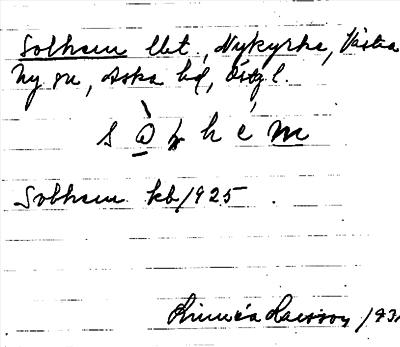 Solhem lht, Nykyrka, Västra
Ny sn, Aska hd, Östgl.
Solhem kb/1925.
Linnéa Larsson /193